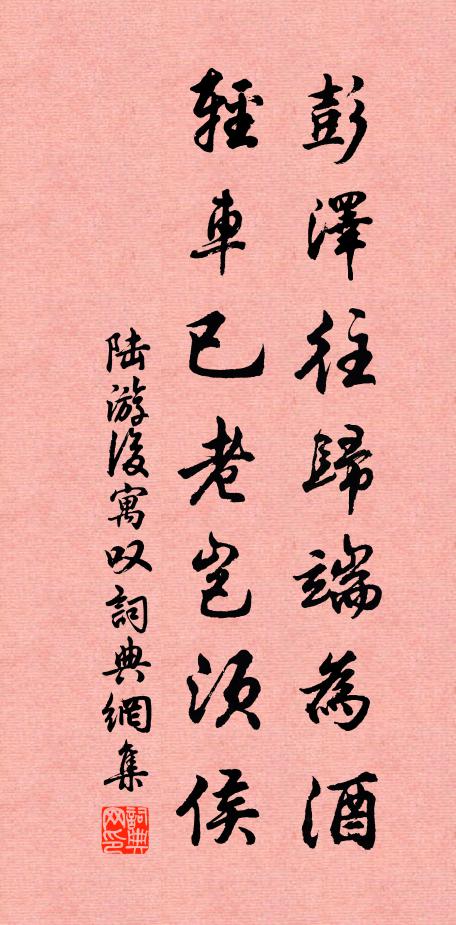 彭澤往歸端為酒
輕車已老豈須侯
陆游後寓叹詞典網集
詞典网印